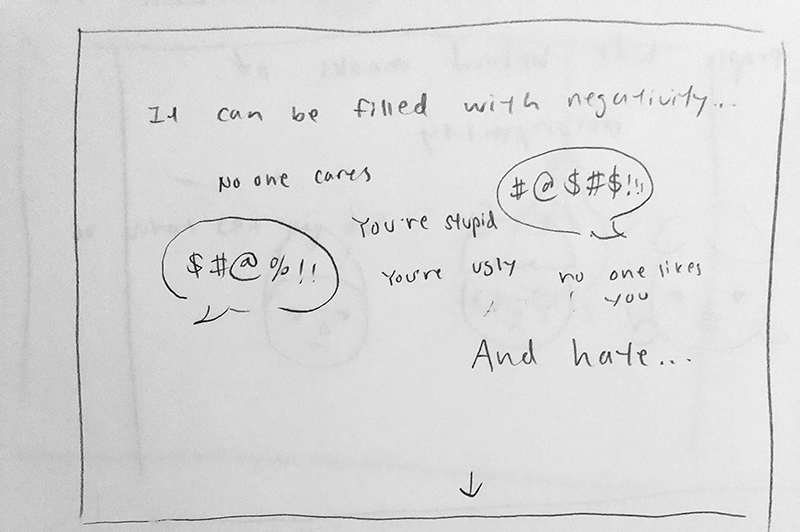 It can be filled with negativity...
No one cares
#@$#$!!!
You're stupid
$#@%!!
You're ugly
no one likes
you
And hate...